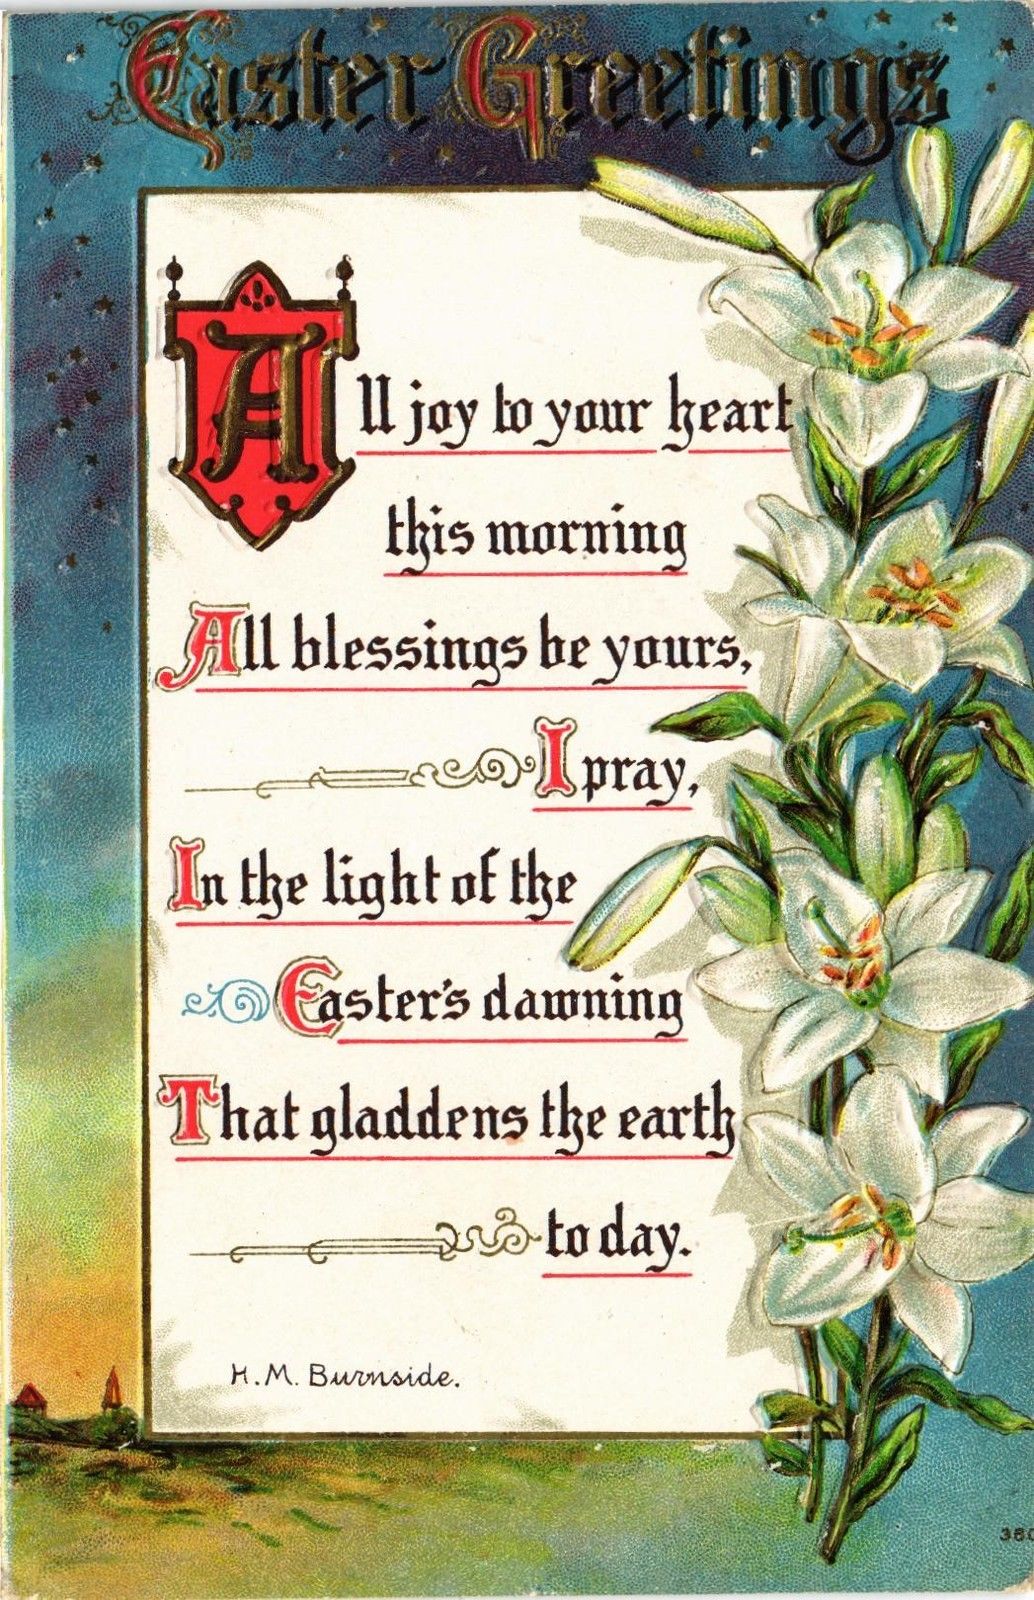 Easter Greetings
All joy to your heart
this morning
All blessings be yours,
I pray,
In the light of the
Easter's dawning
That gladdens the earth
to day.
H. M. Burnside.